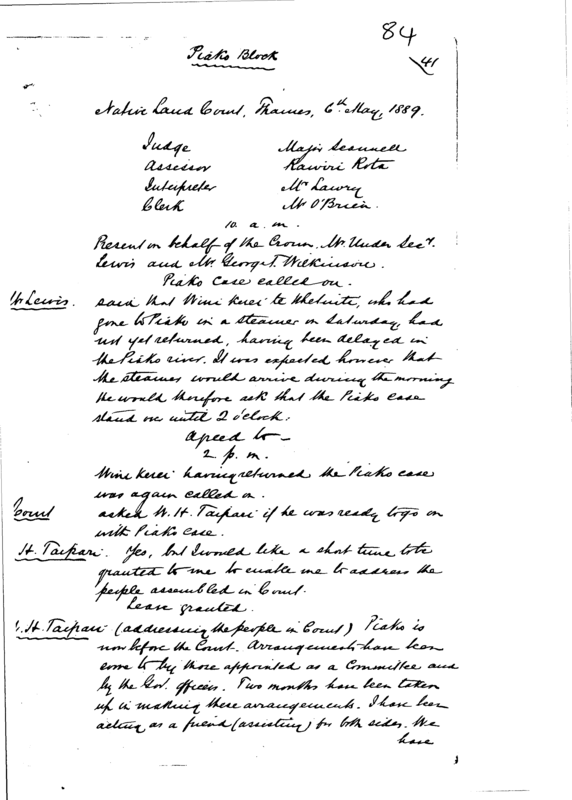 84
41
Piako Block
Native Land Court, Thames, 6th May, 1889.
Judge Major Scannell
Assessor Rawiri Rota
Interpreter Mr Lawry
Clerk Mr O'Brien.
10 a.m.
Present on behalf of the Crown, Mr. Under Secy.
Lewis and Mr. George T. Wilkinson.
Piako case called on.
Mr Lewis. said that Wini Kerei te Whetuiti, who had
gone to Piako in a steamer on Saturday, had
not yet returned, having been delayed in
the Piako river. It was expected however that
the steamer would arrive during the morning
He would therefore ask that the Piako case
stand over until 2 o'clock.
Agreed to —
2 p.m.
Wini Kerei having returned the Piako case
was again called on.
Court asked W. H. Taipari if he was ready to go on
with Piako case.
H. Taipari. Yes, but I would like a short time to be
granted to me to enable me to address the
people assembled in Court.
Leave granted.
H. Taipari (addressing the people in Court) Piako is
now before the Court. Arrangements have been
come to by those appointed as a Committee and
by the Gov. officers. Two months have been taken
up in making these arrangements. I have been
acting as a friend (assisting) for both sides. We
have